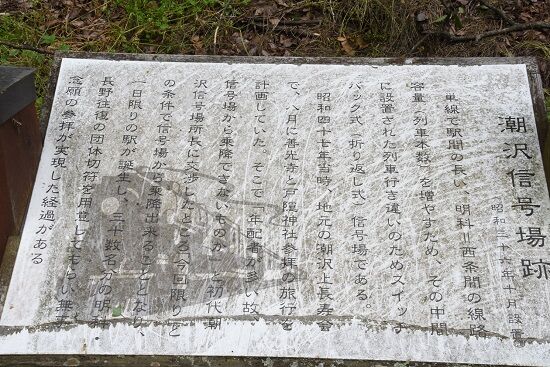 潮沢信号場跡
昭和三十六年十月設置
単線で駅間の長い、明科=西条間の線路
容量(列車本数)を増やすため、その中間
に設置された列車行き違いのためスイッチ
バック式(折り返し式)信号場である。
昭和四十七年当時、地元の潮沢上長寿会
で、八月に善光寺と戸隠神社参拝の旅行を
計画していた。そこで「年配者が多い故
信号場から乗降できないものか」と初代潮
沢信号場所長に交渉したところ「今回限りと
の条件で信号場から乗降出来ることとなり、
一日限りの駅が誕生し、三十数名分の明科
長野往復の団体切符を用意してもらい無事
念願の参拝が実現した経過がある